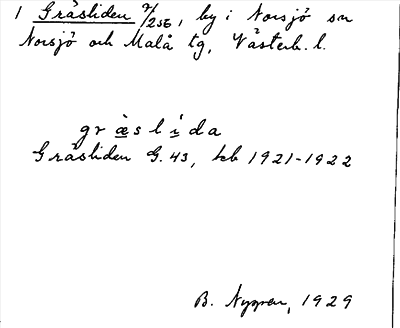 1 Gräsliden 2/256, by i Norsjö sn
Norsjö och Malå tg, Västerb. l.
gr æ s l i d a
Gräsliden G. 43, kb 1921-1922
B. Nygren, 1929